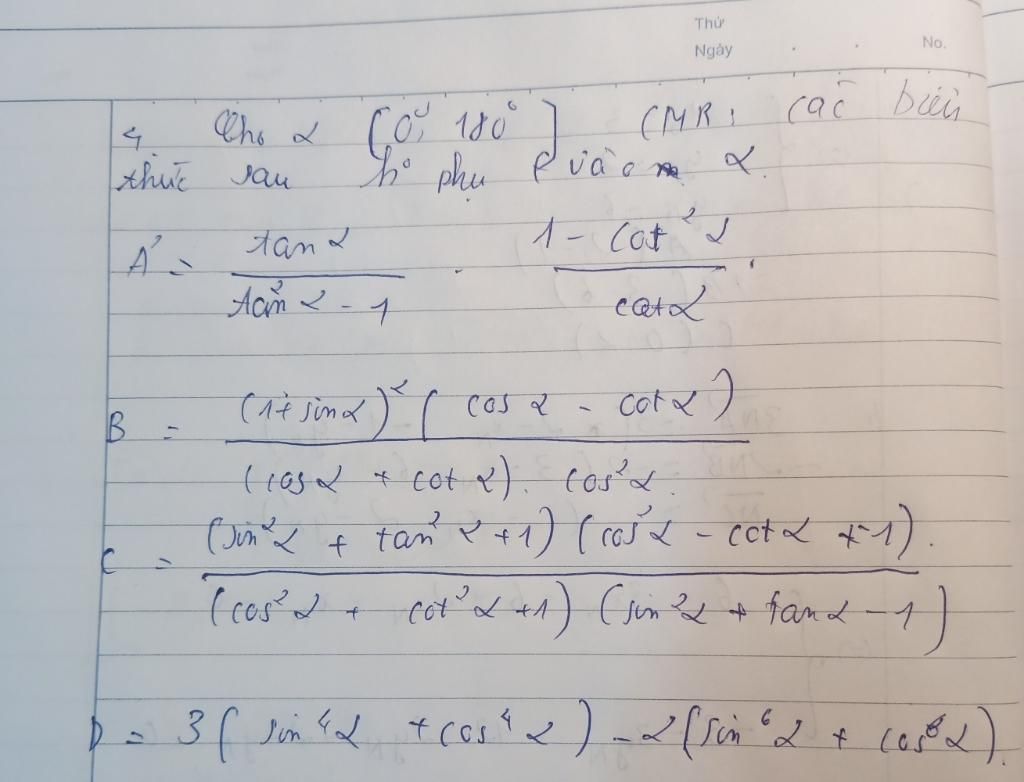 Thứ
Ngày . . No.
4. Cho α [0°; 180°] CMR: các biểu
thức sau ko phụ t vào α.
A = tanα / (tan²α - 1) . (1 - cot²α) / cotα .
B = (1 + sinα)² (cosα - cotα) / (cosα + cotα). cos²α.
C = (sin²α + tan²α + 1) (cos²α - cotα + 1) . / (cos²α + cot²α + 1) (sin²α + tanα - 1)
D = 3(sin⁴α + cos⁴α) - 2(sin⁶α + cos⁶α).